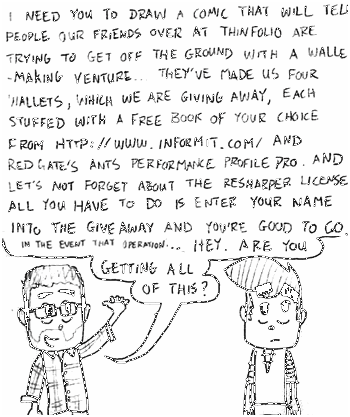 I NEED YOU TO DRAW A COMIC THAT WILL TELL
PEOPLE OUR FRIENDS OVER AT THINFOLIO ARE
TRYING TO GET OFF THE GROUND WITH A WALLE
-MAKING VENTURE.. THEY'VE MADE US FOUR
WALLETS, WHICH WE ARE GIVING AWAY, EACH
STUFFED WITH A FREE BOOK OF YOUR CHOICE
FROM HTTP://WWW.INFORMIT.COM/ AND
RED GATE'S ANTS PERFORMANCE PROFILE PRO. AND
LET'S NOT FORGET ABOUT THE RESHARPER LICENSE
ALL YOU HAVE TO DO IS ENTER YOUR NAME
INTO THE GIVEAWAY AND YOU'RE GOOD TO GO.
IN THE EVENT THAT OPERATION... HEY. ARE YOU
GETTING ALL
OF THIS?